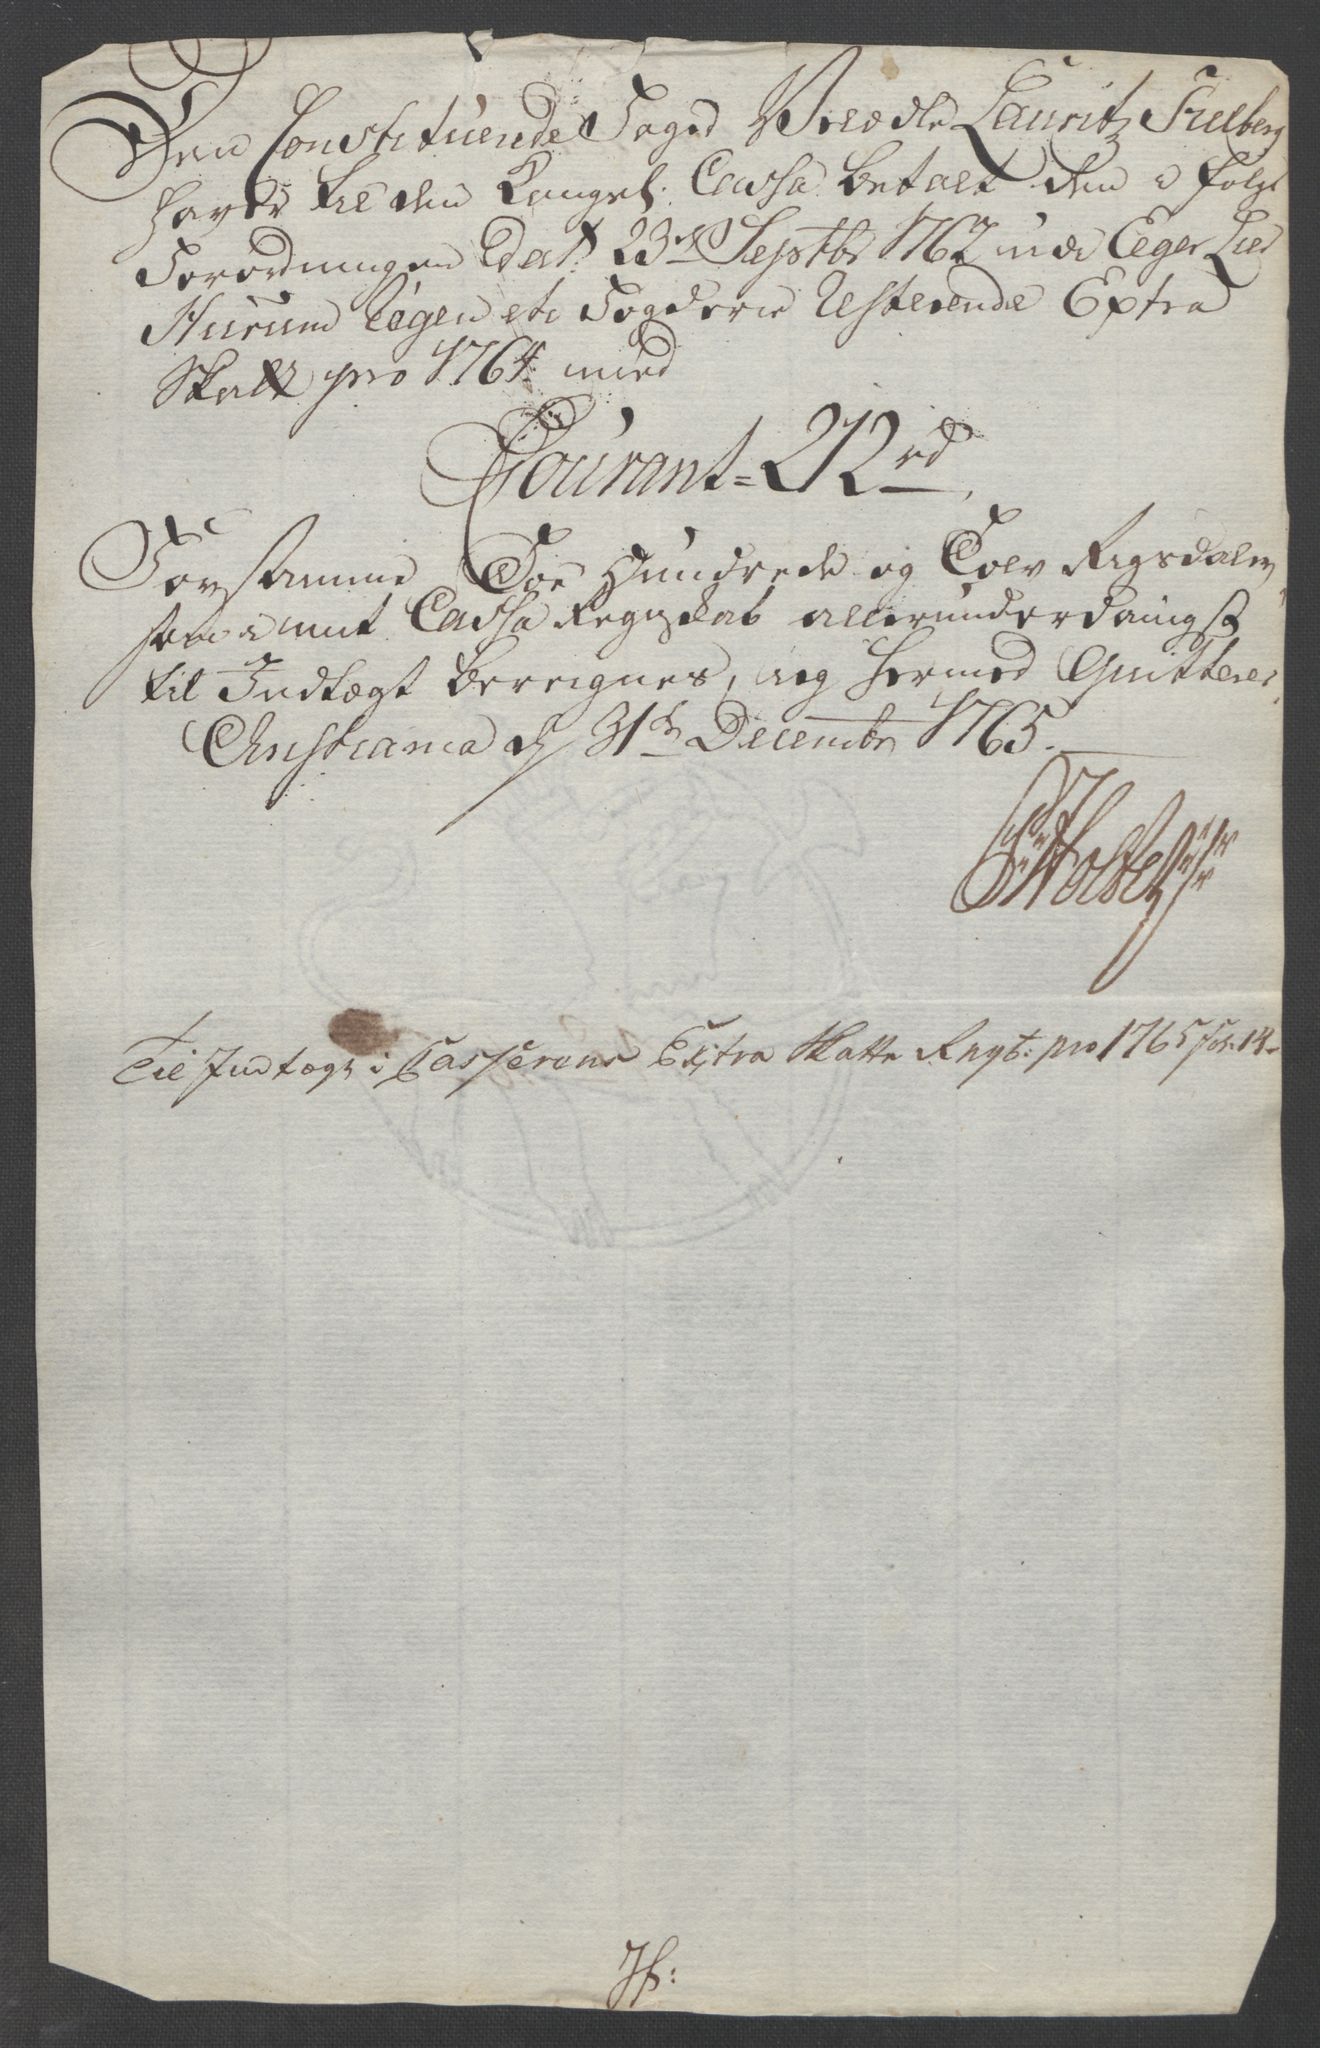 Den Constituerede Foged Velædle Lauritz Fielberg
haver til den Kongel: Cassa betalt den i følge
Forordningen Dat: 23de Septbr 1762 udi Eger Lier
Hurum Eigen etc Fogderie Resterende Extra
Skatt pro 1764 med
Courant = 212 rd
Forstemme Toe Hundrede og Tolv Rigsdaler
som i mit Cassa Regnskab allerunderdanigst
til Indtægt bereignes, ieg hermed Quitterer
Christiania d: 31te December 1765.
Holte
Til Indtægt i Casserens Extra Skatte Regsk: pro 1765 Fol: 14